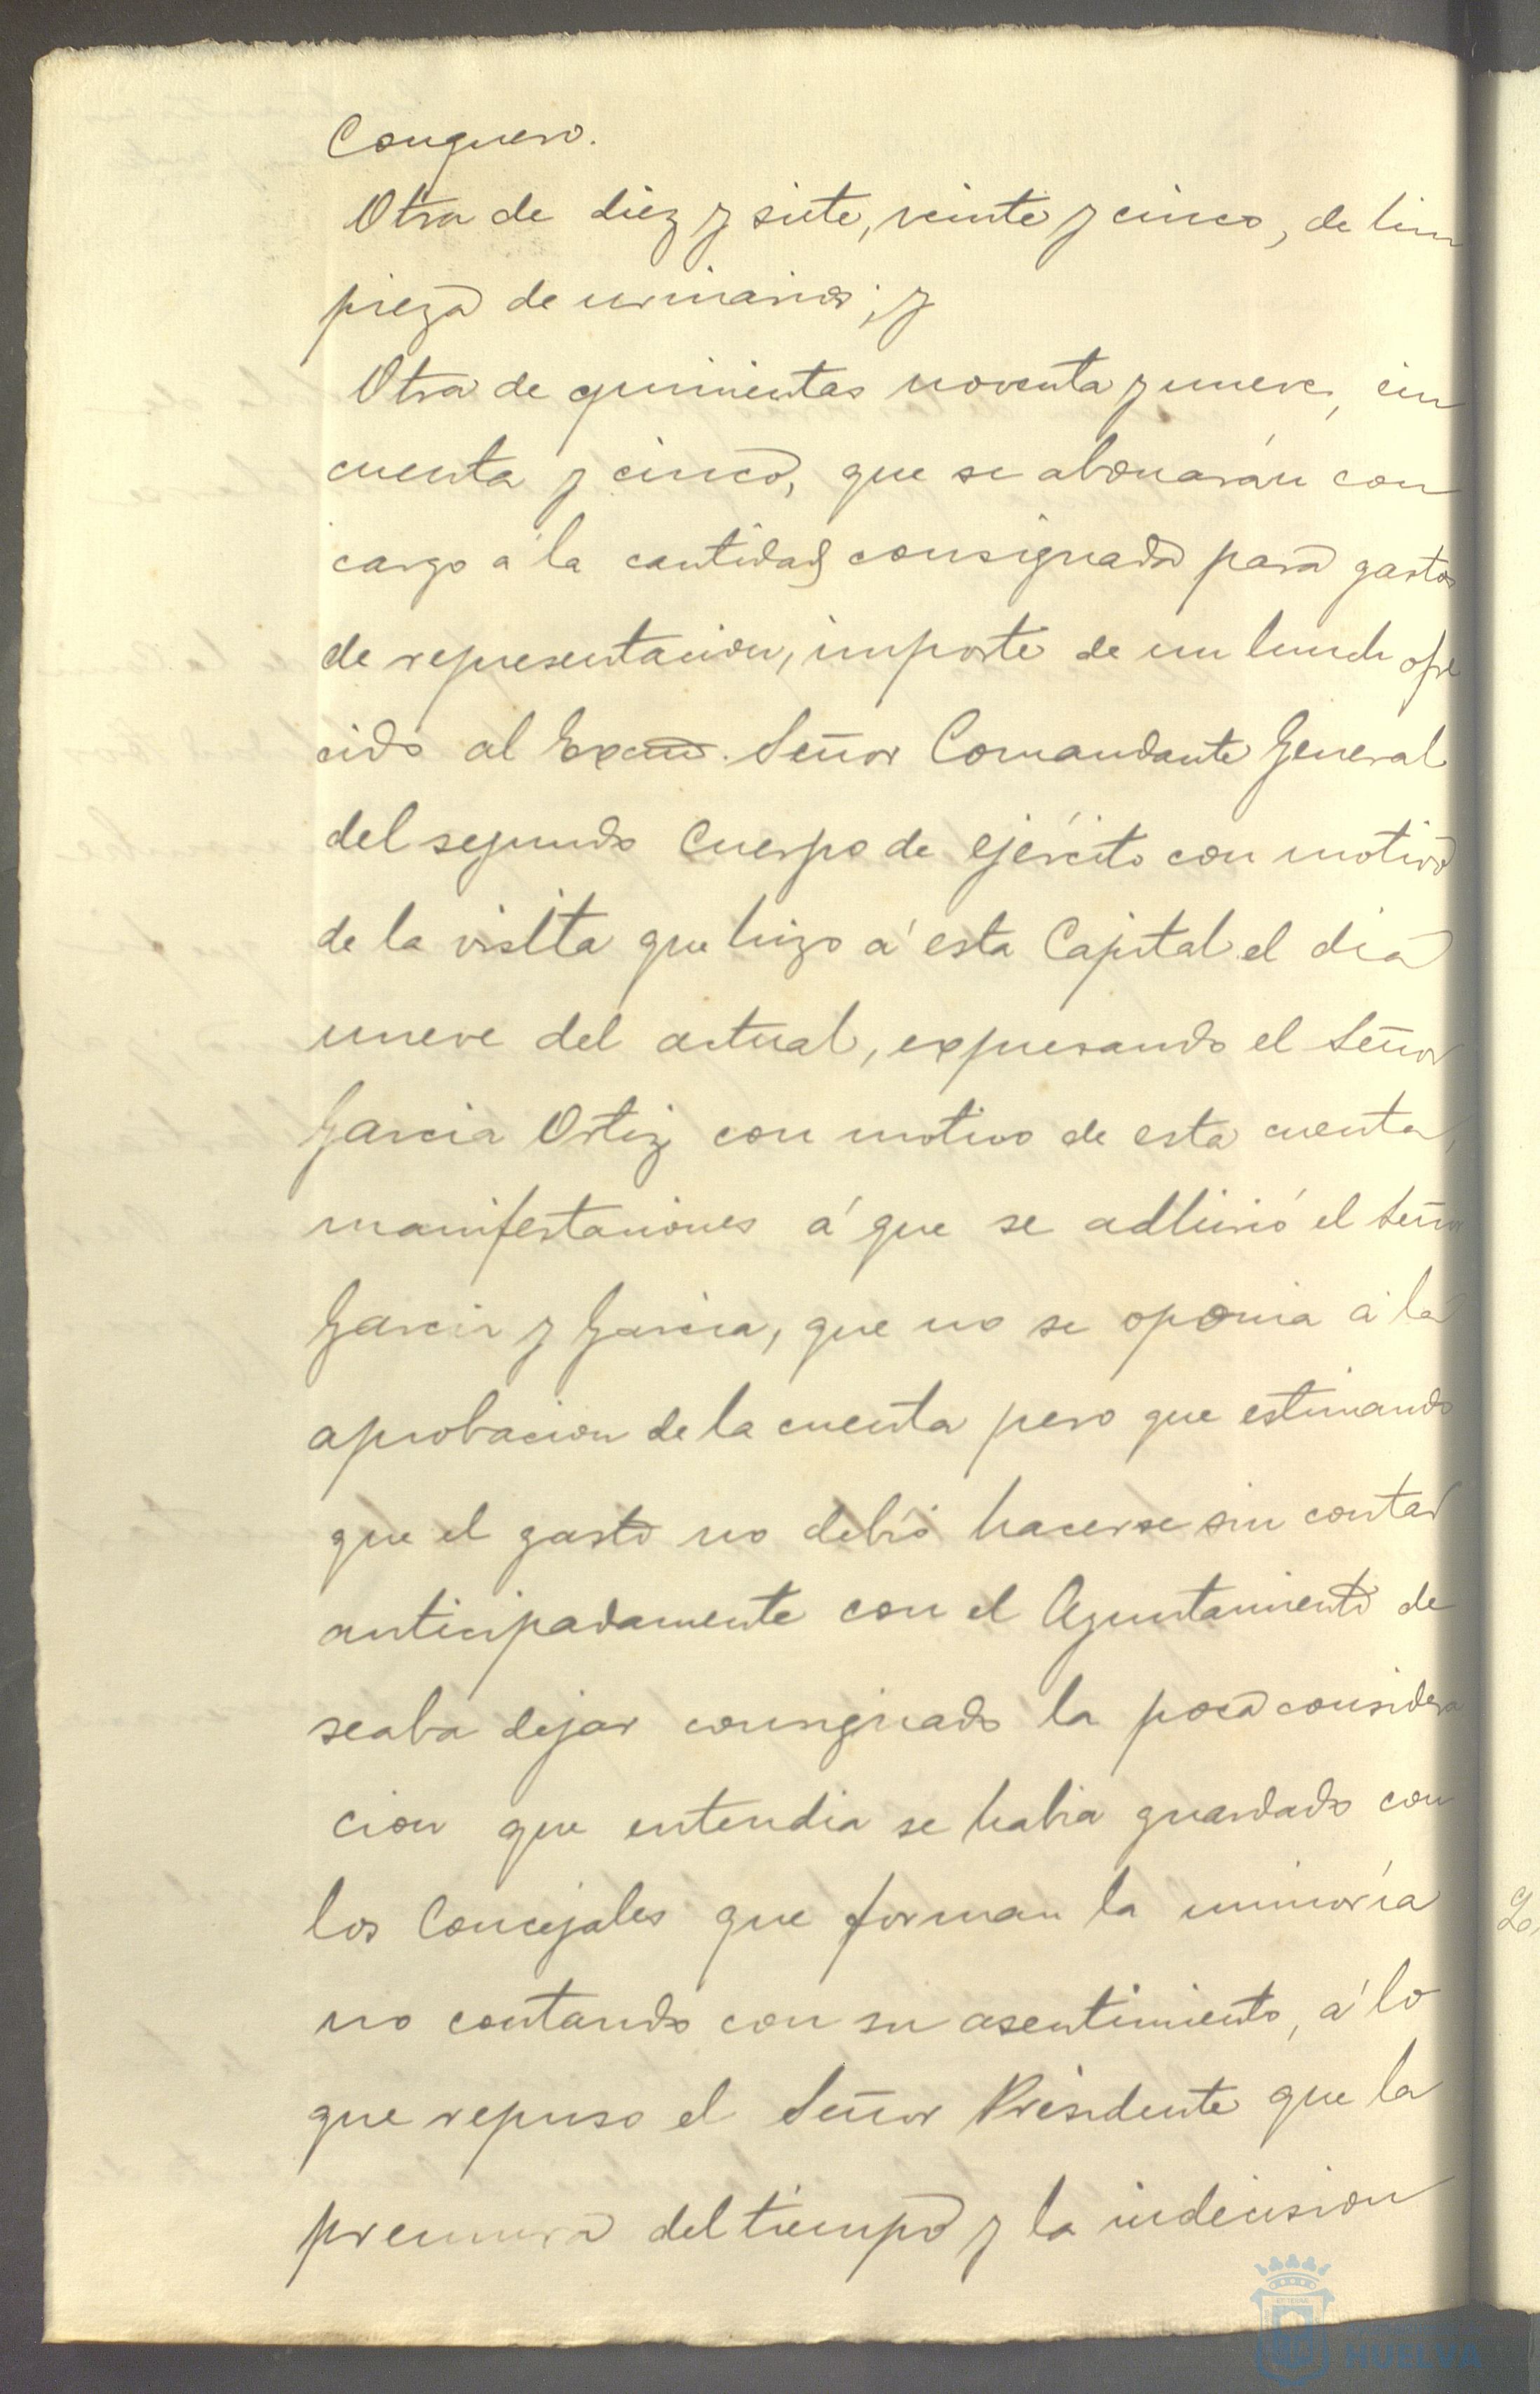 Conquero.
Otra de diez y siete, veinte y cinco, de lim
pieza de urinarios; y
Otra de quinientas noventa y nueve, cin
cuenta y cinco, que se abonarán con
cargo á la cantidad consignada para gastos
de representacion, importe de un lunch ofre
cido al Excmo. Señor Comandante General
del segundo Cuerpo de ejército con motivo
de la visita que hizo á esta Capital el dia
nueve del actual, expresando el Señor
Garcia Ortiz con motivo de esta cuenta,
manifestaciones á que se adhirió el Señor
Garcia y Garcia, que no se oponia á la
aprobacion de la cuenta pero que estimando
que el gasto no debió hacerse sin contar
anticipadamente con el Ayuntamiento de
seaba dejar consignado la poca considera
cion que entendia se habia guardado con
los Concejales que forman la minoría
no contando con su asentimiento, á lo
que repuso el Señor Presidente que la
premura del tiempo y la indecision
HUELVA